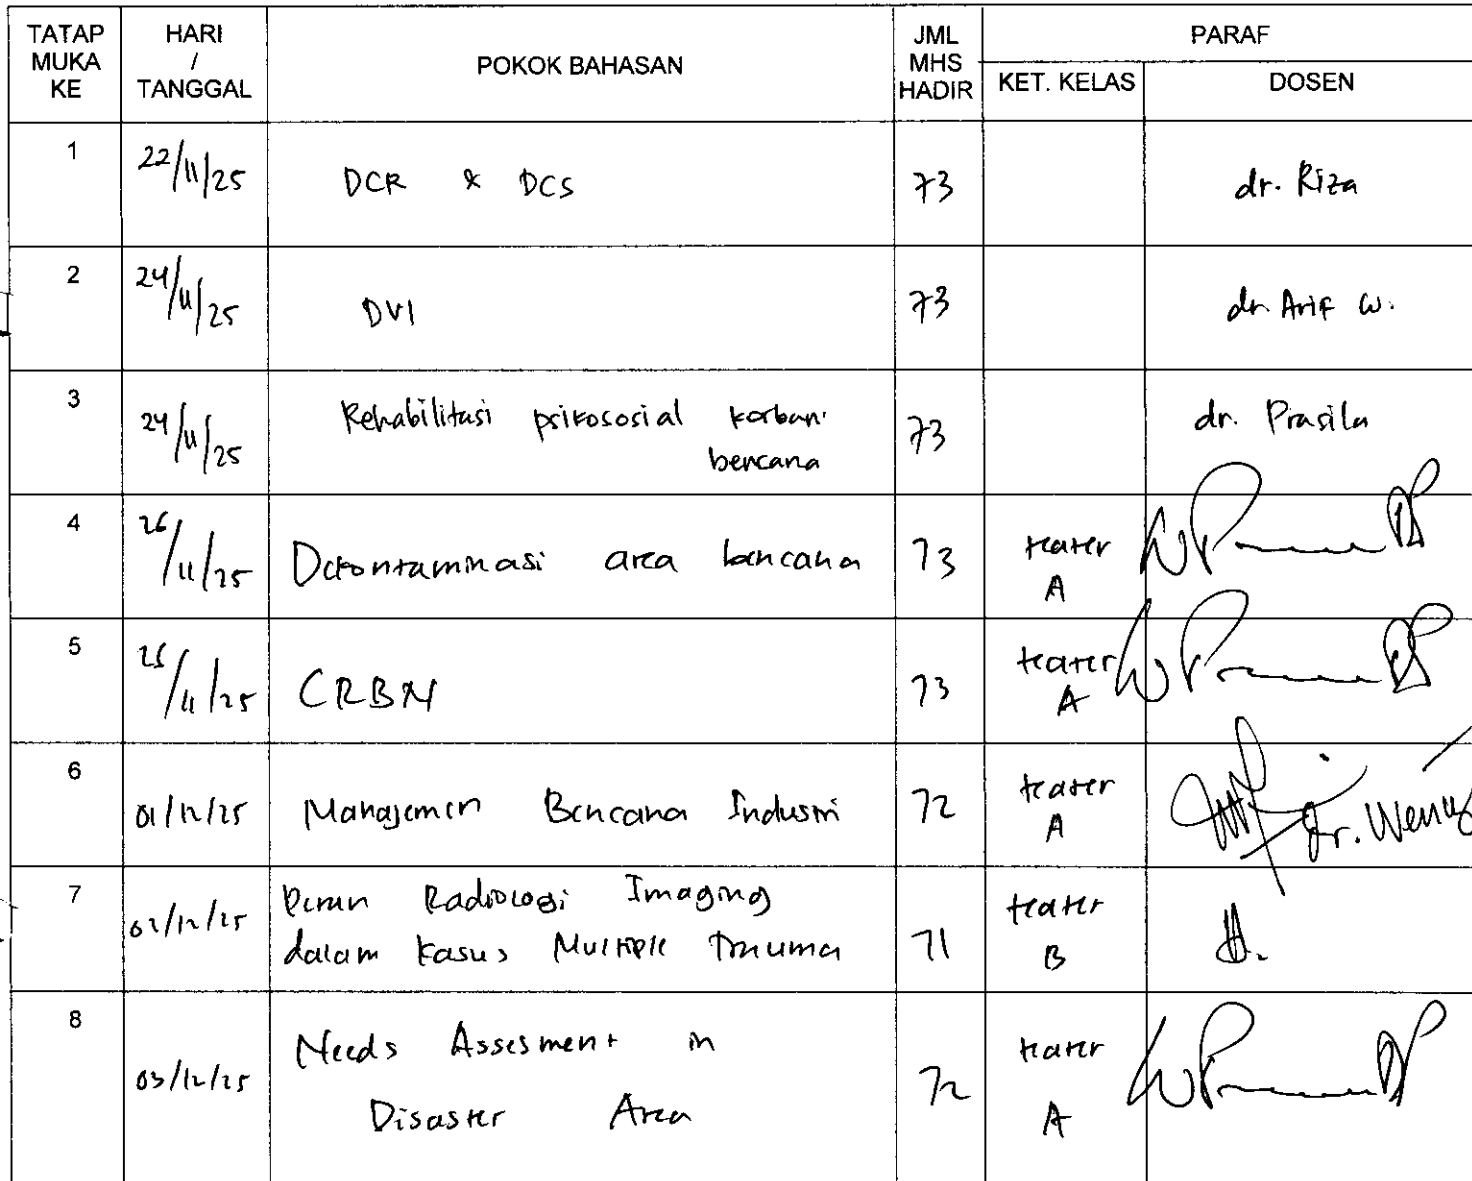 TATAP MUKA KE
HARI / TANGGAL
POKOK BAHASAN
JML MHS HADIR
PARAF
KET. KELAS
DOSEN
1
22/11/25
DCR & DCS
73
dr. Riza
2
24/11/25
DVI
73
dr. Arif W.
3
24/11/25
Rehabilitasi psikososial korban
bencana
73
dr. Prasila
4
26/11/25
Dekontaminasi area bencana
73
teater
A
5
26/11/25
CRBN
73
teater
A
6
01/12/25
Manajemen Bencana Industri
72
teater
A
dr. Weny
7
02/12/25
Peran Radiologi Imaging
dalam kasus Multiple Trauma
71
teater
B
8
03/12/25
Needs Assesment in
Disaster Area
72
teater
A